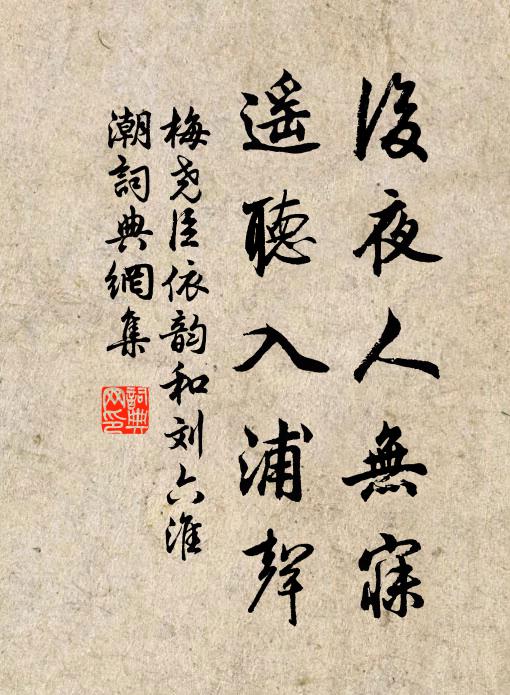 後夜人無寐
遥聽入浦聲
梅尧臣依韵和刘六淮
潮詞典網集
詞典
网印